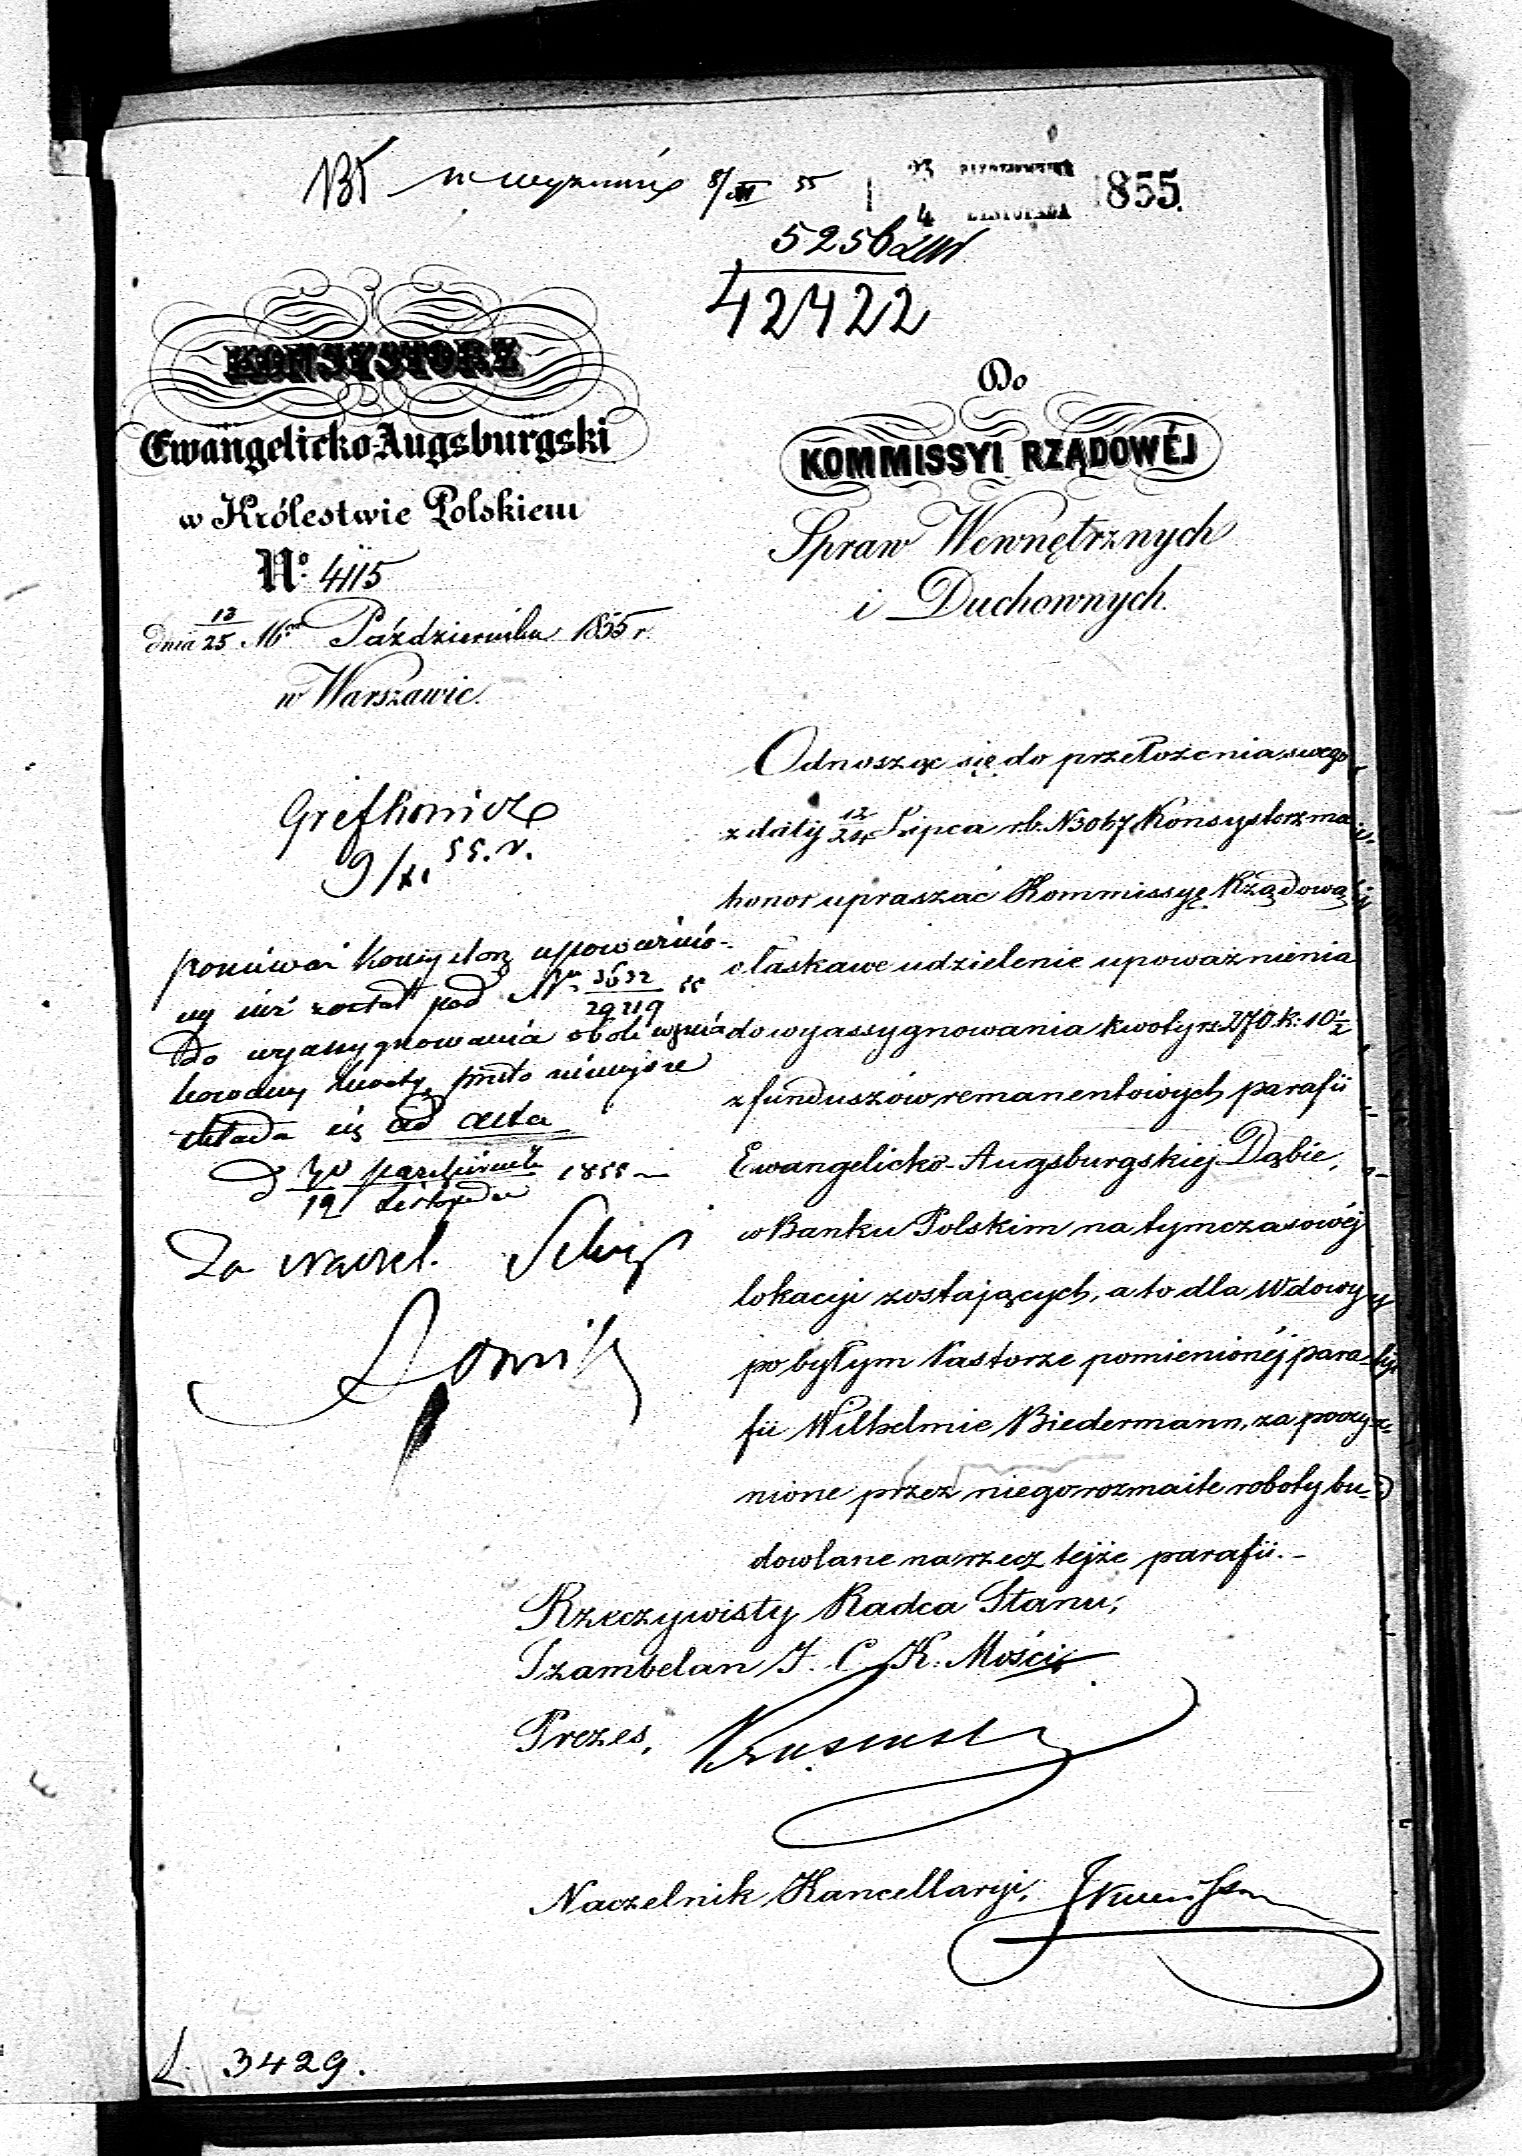 8/XI 55
23 PAŹDZIERNIKA
4 LISTOPADA
1855.
5256
42422
KONSYSTORZ
Ewangelicko-Augsburgski
w Królestwie Polskiem
No. 4115
dnia 13/25 Mca Października 1855 r.
w Warszawie.
Do
KOMMISSYI RZĄDOWÉJ
Spraw Wewnętrznych
i Duchownych.
Odnosząc się do przełożenia swego
z daty 12/24 Lipca r.b. N 3067 Konsystorz ma
honor upraszać Kommissyę Rządową
o łaskawe udzielenie upoważnienia
do wyassygnowania kwoty rs. 270 k: 10 1/2
z funduszów remanentowych parafii
Ewangelicko-Augsburgskiej Dąbie,
w Banku Polskim na tymczasowéj
lokacyi zostających, a to dla Wdowy
po byłym Pastorze pomienionéj para-
fii Wilhelmie Biedermann, za poczy-
nione przez niego rozmaite roboty bu-
dowlane na rzecz tejże parafii.-
Rzeczywisty Radca Stanu,
Szambelan J. C. K. Mości
Prezes,
Naczelnik Kancellaryi,
9/XI 55. r.
ponieważ Konsystorz upoważnio-
ny już został pod Nr 3632/29219 55
do wyassygnowania obok wymie
kwoty, przeto niniejsze
składa się ad acta
d 12 Listopada 1855
Za Naczel.
L 3429.